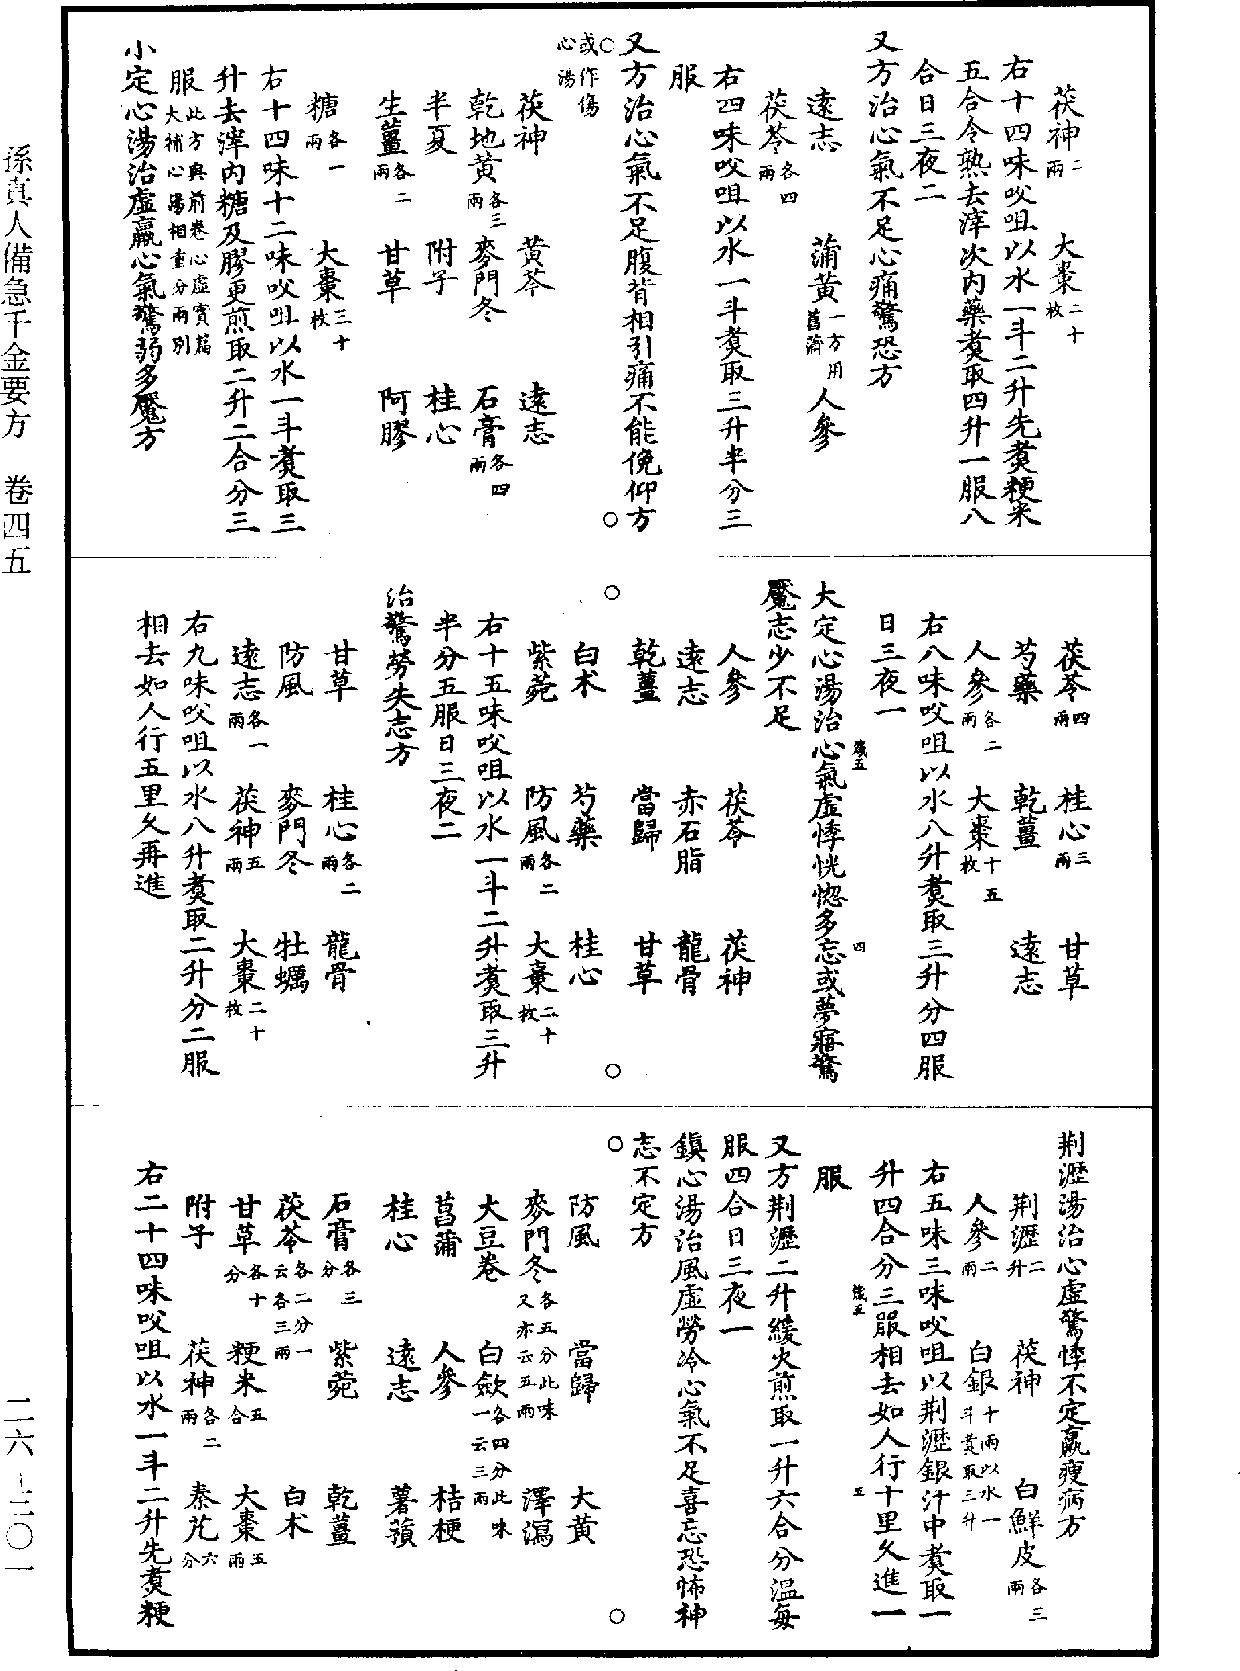 茯神二兩　大棗二十枚
右十四味㕮咀以水一斗二升先煮粳米
五合令熟去滓次內藥煮取四升一服八
合日三夜二
又方治心氣不足心痛驚恐方
遠志　蒲黃一方用菖蒲　人參
茯苓各四兩
右四味㕮咀以水一斗煮取三升半分三
服
又方治心氣不足腹背相引痛不能俛仰方
○或作傷心湯
茯神　黃芩　遠志
乾地黃各三兩　麥門冬　石膏各四兩
半夏　附子　桂心
生薑各二兩　甘草　阿膠
糖各一兩　大棗三十枚
右十四味十二味㕮咀以水一斗煮取三
升去滓內糖及膠更煎取二升二合分三
服此方與前卷心虛實篇大補心湯相重分兩別
小定心湯治虛羸心氣驚弱多魘方
茯苓四兩　桂心三兩　甘草
芍藥　乾薑　遠志
人參各二兩　大棗十五枚
右八味㕮咀以水八升煮取三升分四服
日三夜一
大定心湯治心氣虛悸恍惚多忘或夢寤驚
魘志少不足
人參　茯苓　茯神
遠志　赤石脂　龍骨
乾薑　當歸　甘草
白朮　芍藥　桂心
紫菀　防風各二兩　大棗二十枚
右十五味㕮咀以水一斗二升煮取三升
半分五服日三夜二
治驚勞失志方
甘草　桂心各二兩　龍骨
防風　麥門冬　牡蠣
遠志各一兩　茯神五兩　大棗二十枚
右九味㕮咀以水八升煮取二升分二服
相去如人行五里久再進
荆瀝湯治心虛驚悸不定羸瘦病方
荆瀝二升　茯神　白鮮皮各三兩
人參二兩　白銀十兩以水一斗煮取三升
右五味三味㕮咀以荆瀝銀汁中煮取一
升四合分三服相去如人行十里久進一
服
又方荆瀝二升緩火煎取一升六合分溫每
服四合日三夜一
鎮心湯治風虛勞冷心氣不足喜忘恐怖神
志不定方
防風　當歸　大黃
麥門冬各五分此味又亦云五兩　澤瀉
大豆卷　白斂各四分此味一云三兩
菖蒲　人參　桔梗
桂心　遠志　薯蕷
石膏各三分　紫菀　乾薑
茯苓各二分一云各三兩　白朮
甘草各十分　粳米五合　大棗五兩
附子　茯神各二兩　秦艽六分
右二十四味㕮咀以水一斗二升先煮粳
孫真人備急千金要方　卷四五
二六-三〇一